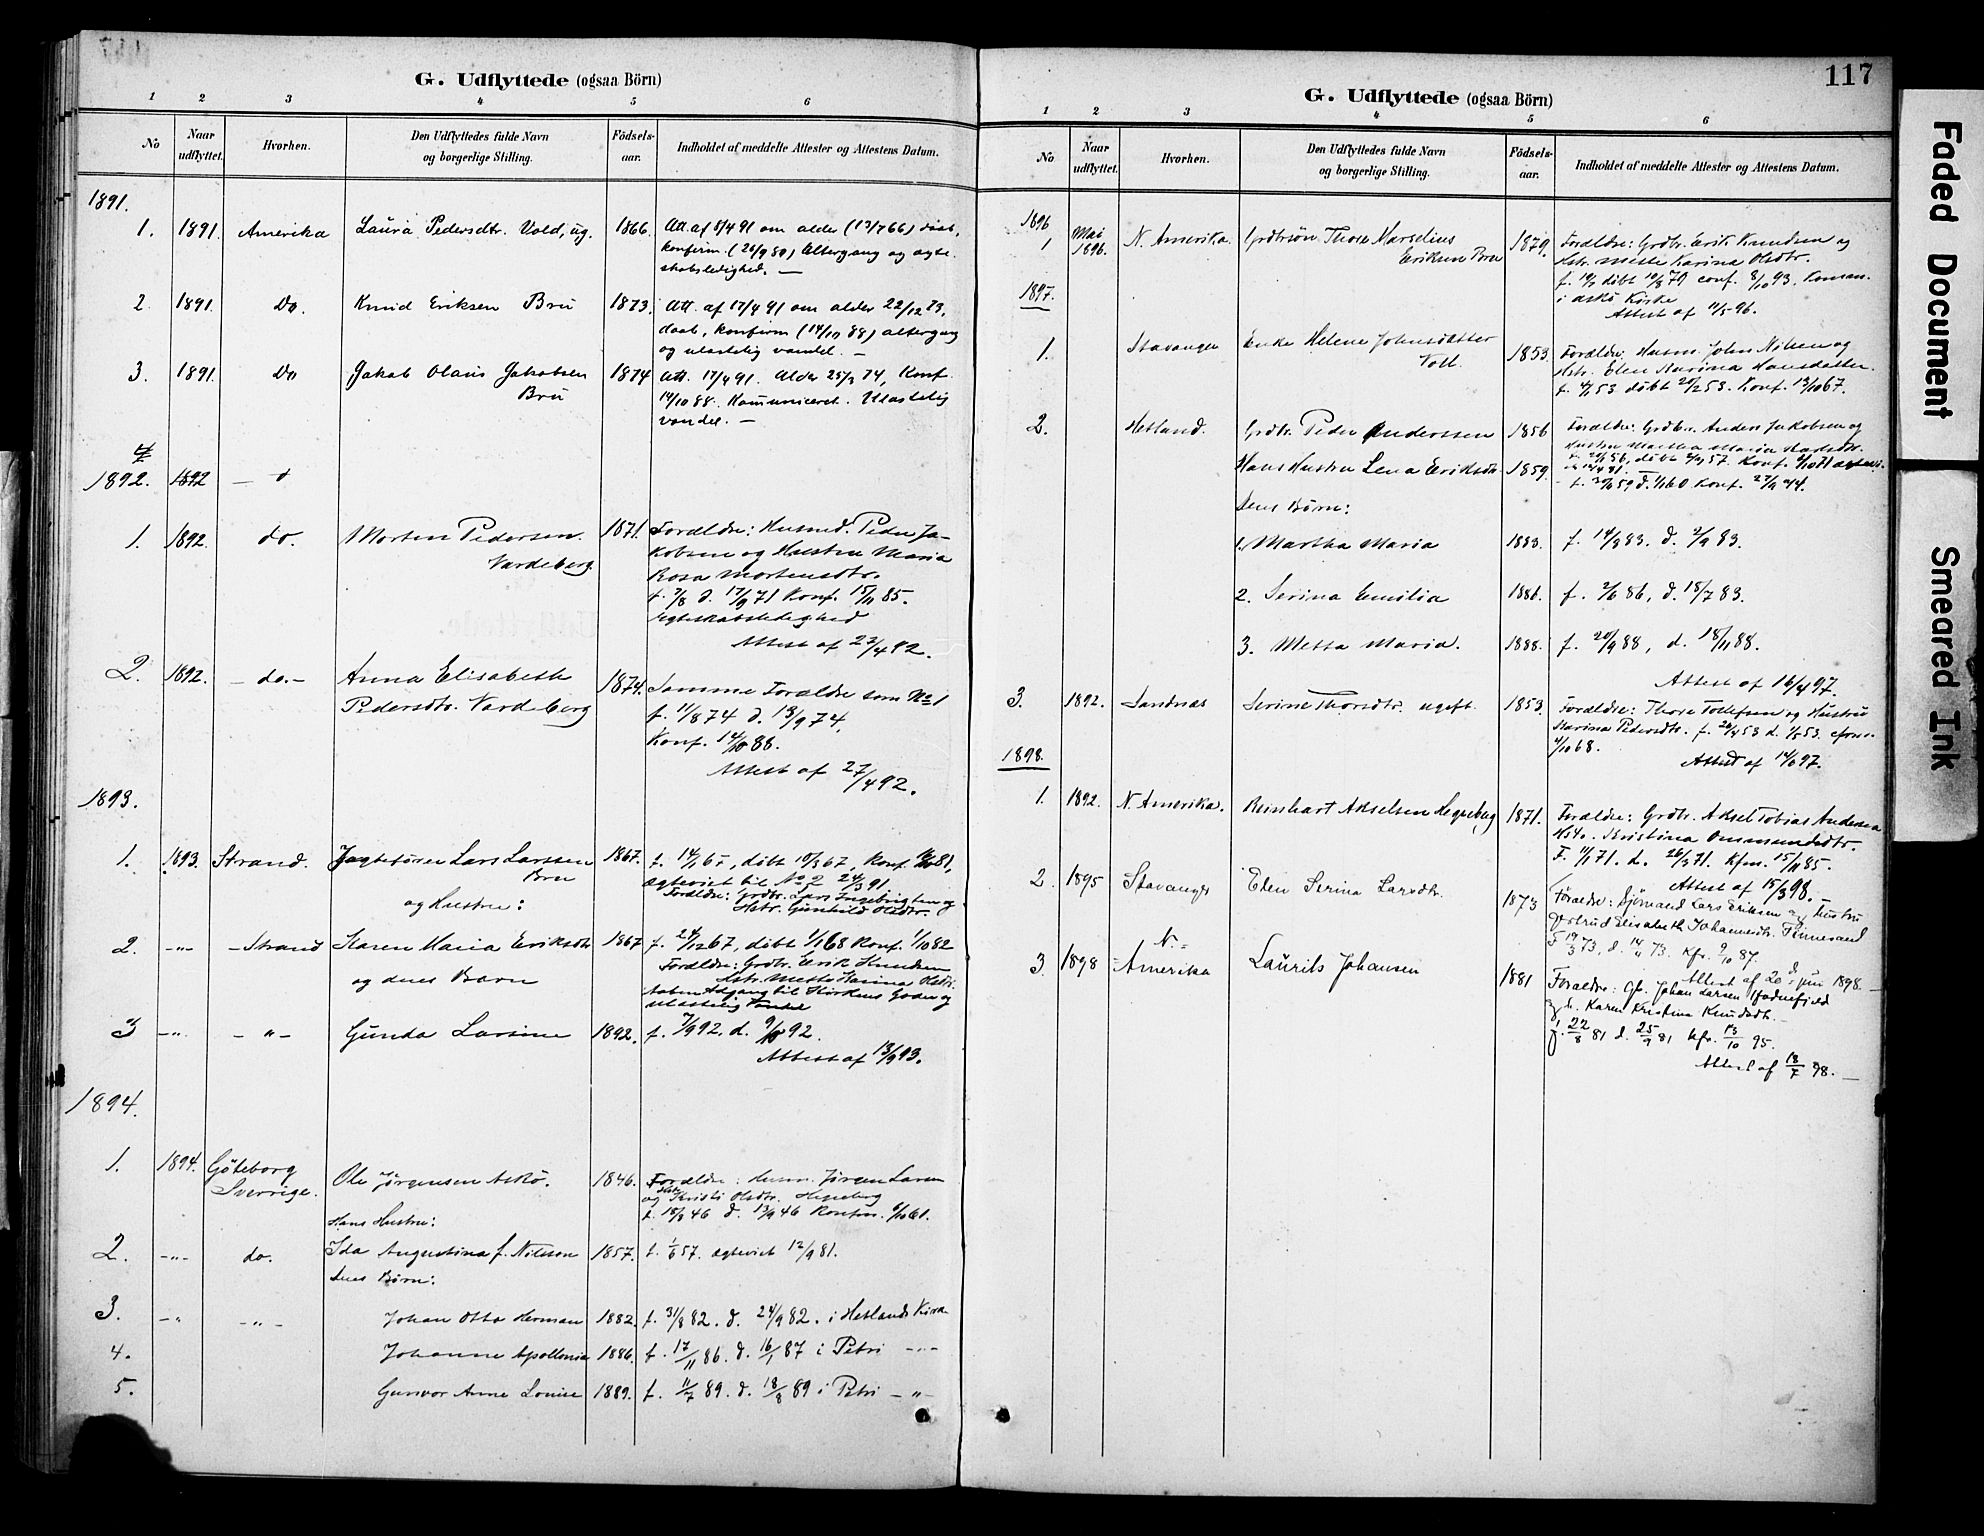 G. Udflyttede (ogsaa Börn)
1 2 3 4 5 6
No Naar udflyttet. Hvorhen. Den Udflyttedes fulde Navn og borgerlige Stilling. Födsels-aar. Indholdet af meddelte Attester og Attestens Datum.
1891.
1. 1891. Amerika Laura Pedersdtr. Vold, ug. 1866. Att. af 8/4 91 om alder (13/7 66) daab,
konfirm. (26/9 80) Altergang og ægte-
skabsledighed. —
2. 1891. Do. Knud Eriksen Bru 1873. Att. af 17/4 91 om alder 22/12 73,
daab, konfirm (14/10 88) altergang
og ulastelig vandel. —
3. 1891. Do Jakob Olaus Jakobsen 1874 Att. 17/4 91. Alder 25/3 74, Konf.
Bru 14/10 88. Kommuniceret. Ulastelig
vandel. —
1892. 1892
1. 1892. do. Morten Pedersen 1871. Forældre: Husmd. Peder Ja-
Vardeberg kobsen og Hustru Maria
Rosa Mortensdtr.
f. 7/8 d. 17/9 71 Konf. 15/11 85.
Ægteskabsledighed
Attest af 23/4 92.
2. 1892. — do. — Anna Elisabeth 1874. Samme Forældre som No 1
Pedersdtr. Vardeberg f. 11/8 74 d. 13/9 74,
Konf. 14/10 88.
Attest af 27/4 92.
1893.
1. 1893. Strand. Jagtefører Lars Larssen 1867. f. 14/1 67, döbt 10/3 67, Konf. 81,
Bru ægteviet til No 2 24/3 91
og Hustru: Forældre: Grdbr. Lars Ingebrigtsen og
Hstr. Gunhild Olsdtr.
2. -"- - Strand Karen Maria Eriksdtr 1867 f. 24/12 67, döbt 1/1 68 Konf. 1/10 82
og deres Barn Forældre: Grdbr. Erik Knudsen
Hstr. Mette Karina Olsdtr.
Aaben Adgang til Kirkens Goder og
ulastelig Vandel
3 -"- - " - Gunda Larsine 1892. f. 7/9 92. d. 9/10 92.
Attest af 13/9 93.
1894.
1. 1894. Göteborg Ole Jørgensen Askö. 1846. Forældre: Husm. Jörgen Larsen
Sverrige. og Hstr Kristi Olsdtr. Hegreberg
Hans Hustru: f. 18/8 46 d. 13/9 46 Konfm. 61.
2. -"- do. Ida Augustina f. Nilsson 1857. f. 1/6 57. ægteviet 12/9 81.
deres Börn:
3. - " - " - Johan Otto Herman 1882. f. 31/8 82. d. 24/9 82. i Hetlands Kirke
4. Johanne Apollonia 1886. f. 17/11 86. d. 16/1 87 i Petri -"-
5. Gunvor Anne Louise 1889. f. 11/7 89. d. 18/8 89 i Petri - " -
117
G. Udflyttede (ogsaa Börn)
1 2 3 4 5 6
No Naar udflyttet. Hvorhen. Den Udflyttedes fulde Navn og borgerlige Stilling. Födsels-aar. Indholdet af meddelte Attester og Attestens Datum.
1896
1 Mai 1896. N. Amerika. Grdbrsön Thore Marselius 1879. Forældre: Grdbr. Erik Knudsen og
Eriksen Bru Hstr. Mette Karina Olsdtr.
döbt 79 conf. 8/10 93.
i Askö Kirke
Attest af 11/5 96.
1897.
1. Stavanger Enke Helene Johnsdatter 1853. Forældre: Husm. John Nilsen og
Voll. Hstr. Elen Karina Hansdatter.
f. 4/1 53 döbt 20/2 53. Konf. 13/10 67.
2. Hetland. Grdbr. Peder Anderssen 1856 Forældre: Grdbr. Anders Jakobsen og
Hustru Martha Maria
56, döbt 57. Konf. 71
Hans Hustru Lena Eriksdtr 1859. f. 59 d. 60 Konf. 74.
deres Börn:
1. Martha Maria 1883. f. 14/8 83. d. 2/9 83.
2. Serina Emilia 1886. f. 2/6 86, d. 18/7 83.
3. Metta Maria. 1888. f. 20/9 88, d. 18/11 88.
Attest af 16/4 97.
3. 1892. Sandnæs Serine Thorsdtr. ugift. 1853. Forældre: Thore Tollefsen og Hustru
Karina Pedersdtr. f. 53 d. 53.
4/10 68.
Attest af 97.
1898.
1. 1892. N. Amerika. Reinhart Akselsen Hegreberg 1871. Forældre: Grdbr. Aksel Tobias Andersen
Hstr. Kristina Ommundsdtr.
F. 11/1 71. d. 26/3 71. Kfm. 15/11 85.
Attest af 15/3 98. —
2 1895 Stavanger Elen Serina Larsdtr. 1873 Forældre: Sjömand Lars Eriksen og hustru
Gjertrud Elisabeth Johannesdtr. Finnesand
F 19/3 73, d. 14/4 73. Kfr. 9/10 87.
Attest af 20de juni 1898. —
3 1898 N.=Amerika Laurits Johansen 1881 Forældre: Gb. Johan Larsen Hodnefjeld
og h. Karen Kristina Knudsdtr. —
f. 22/8 81 d. 25/9 81 kfr. 13/10 95.
Attest af 13/7 98. —
Faded Document
Smeared Ink